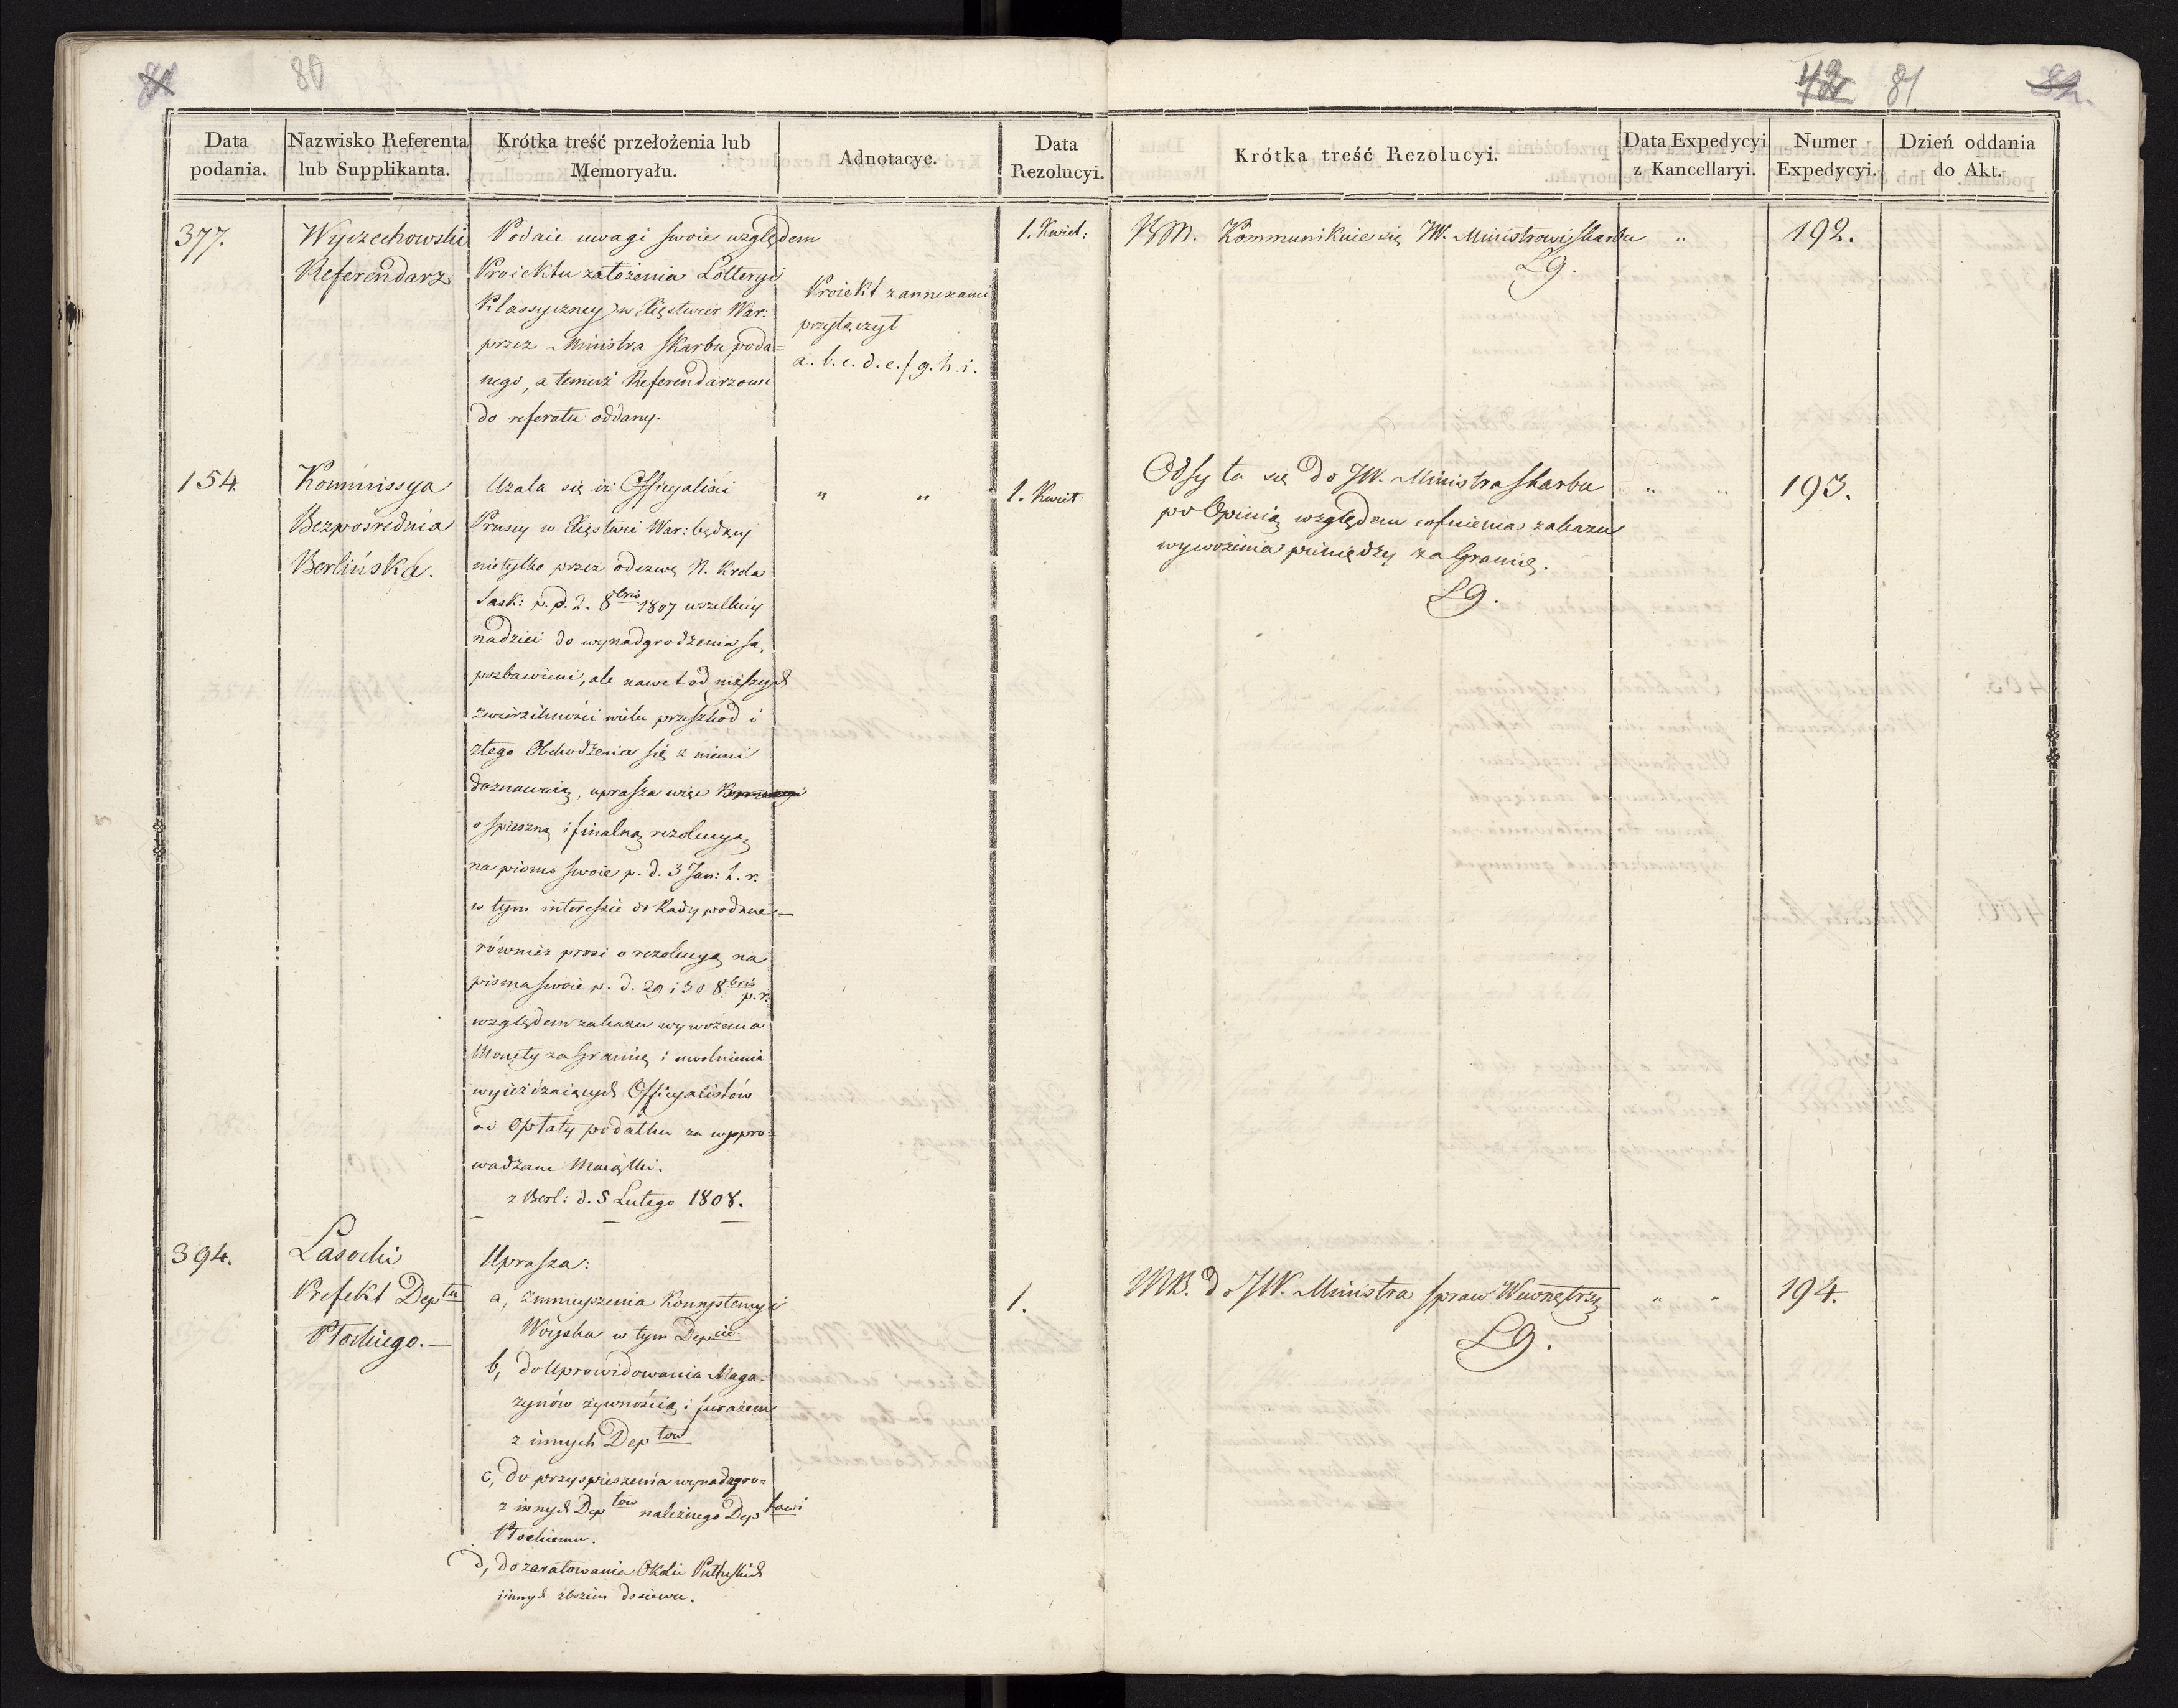 80
42 81
Data podania.
Nazwisko Referenta lub Supplikanta.
Krótka treść przełożenia lub Memoryału.
Adnotacye.
Data Rezolucyi.
Krótka treść Rezolucyi.
Data Expedycyi z Kancellaryi.
Numer Expedycyi.
Dzień oddania do Akt.
377.
Wyczechowski
Referendarz
Podaie uwagi swoie względem
Proiektu założenia Lotteryi
Klassyczney w Xięstwie War:
przez Ministra Skarbu poda=
nego, a temuż Referendarzowi
do referatu oddany.
Proiekt z annexami
przyłączył
a. b. c. d. e. f g. h. i.
1. Kwiet:
BM. Kommunikuie się JW. Ministrowi Skarbu "
LG.
192.
154.
Kommissya
Bezpośrednia
Berlińska.
Użala się iż Officyaliści
Pruscy w Xięstwie War: będący
nietylko przez odezwę N. Krola
Sask: p. d. 2. 8bris 1807 wszelkiey
nadziei do wynadgrodzenia są
pozbawieni, ale nawet od niższych
zwierzchności wielu przeszkod i
złego Obchodzenia się z niemi
doznawaią, uprasza więc
o spieszną i finalną rezolucyą
na pismo swoie p. d. 3 Jan: h. r.
w tym interessie do Rady podane –
również prosi o rezolucyą na
pisma swoie p. d. 29 i 30 8bris p. r.
względem zakazu wywożenia
Monety za Granicę i uwolnienia
wyieżdzaiących Officyalistów
od Opłaty podatku za wypro=
wadzane Maiątki.
z Berl: d. 5 Lutego 1808.
" "
1. Kwiet
Odsyła się do JW. Ministra Skarbu
po Opinią względem cofnienia zakazu
wywożenia pieniędzy za Granicę.
LG.
" "
193.
394.
Lasocki
Prefekt Deptu
Płockiego. –
Uprasza:
a, zmnieyszenia Konsystencyi
Woyska w tym Depcie
b, do Uprowidowania Maga=
zynów żywnością i furażem
z innych Deptow
c, do przyspieszenia wynadgro=
z innych Deptow należnego Deptowi
Płockiemu.
d, do zaratowania Okolic Pułtuskich
i innych zbożem do siewu.
1.
MB. do JW. Ministra Spraw Wewnętrz
LG.
" "
194.